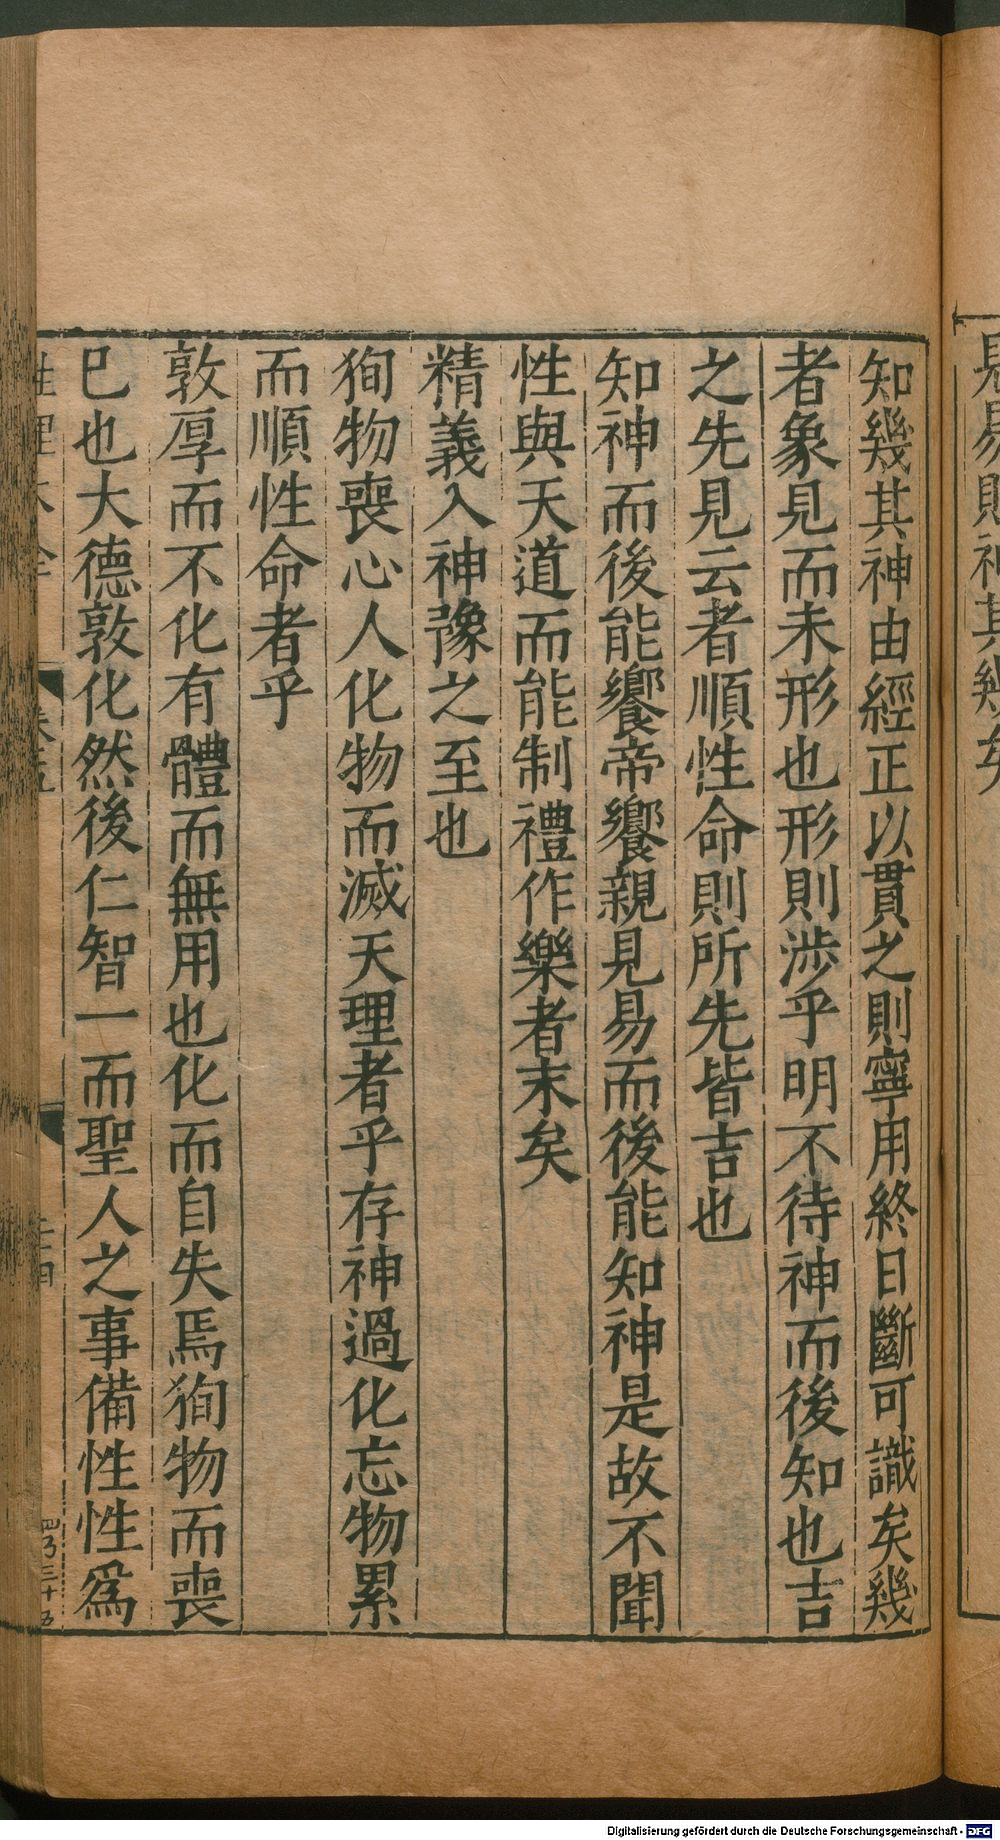 知幾其神由經正以貫之則寧用終日斷可識矣幾
者象見而未形也形則涉乎明不待神而後知也吉
之先見云者順性命則所先皆吉也
知神而後能饗帝饗親見易而後能知神是故不聞
性與天道而能制禮作樂者末矣
精義入神豫之至也
狥物喪心人化物而滅天理者乎存神過化忘物累
而順性命者乎
敦厚而不化有體而無用也化而自失焉狥物而喪
巳也大德敦化然後仁智一而聖人之事備性性爲
Digitalisierung gefördert durch die Deutsche Forschungsgemeinschaft - DFG